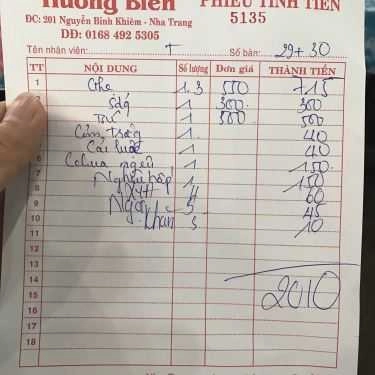 Hương Biển
PHIẾU TÍNH TIỀN
ĐC: 201 Nguyễn Bỉnh Khiêm - Nha Trang
5135
DĐ: 0168 492 5305
Tên nhân viên: T Số bàn: 29+30
TT NỘI DUNG Số lượng Đơn giá THÀNH TIỀN
1 Ghẹ 1.3 550 715
Sdá 1 300 300
1 500 500
Cơm trắng 1 40
Cải luộc 1 40
6 1 150
7 Nghêu hấp 1 150
8 4 60
9 Ngọt 5 45
10 khăn 5 10
11
12
14
15 2010
16
17
18